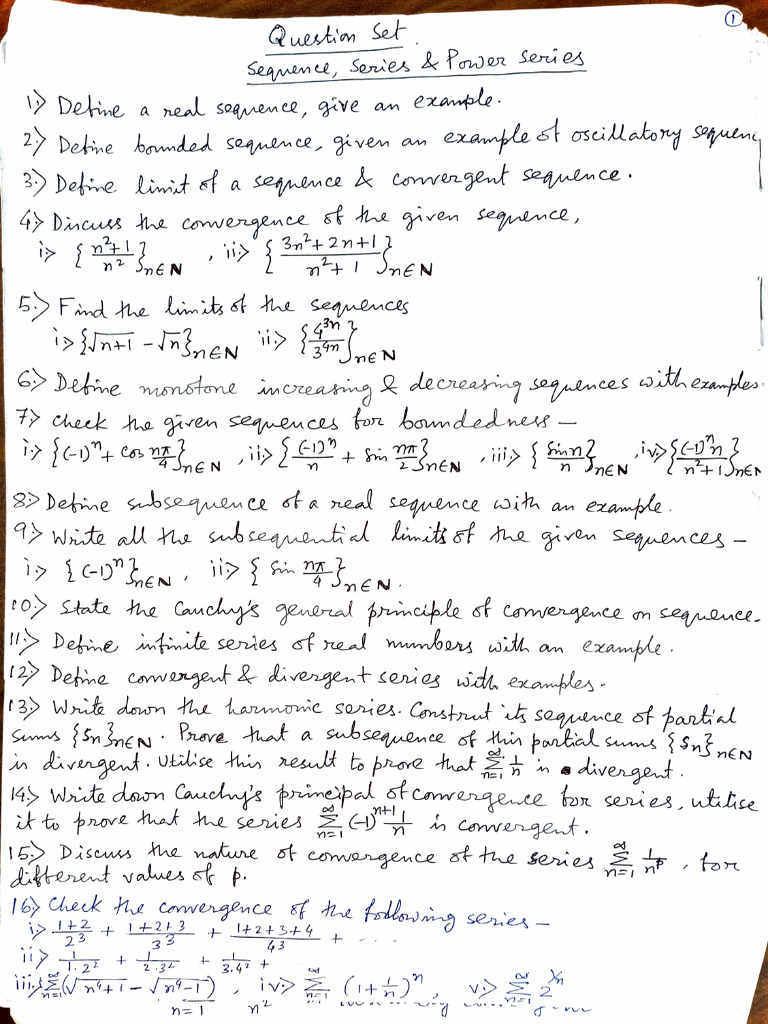 ①
Question Set
Sequence, Series & Power Series
1.> Define a real sequence, give an example.
2.> Define bounded sequence, given an example of oscillatory sequenc
3.> Define limit of a sequence & convergent sequence.
4.> Discuss the convergence of the given sequence,
i.> {(n²+1)/n²}n∈N , ii.> {(3n²+2n+1)/(n²+1)}n∈N
5.> Find the limits of the sequences
i.> {√n+1 - √n}n∈N ii.> {4³ⁿ/3⁴ⁿ}n∈N
6.> Define monotone increasing & decreasing sequences with examples.
7.> Check the given sequences for boundedness —
i.> {(-1)ⁿ + cos nπ/4}n∈N , ii.> {(-1)ⁿ/n + sin nπ/2}n∈N , iii.> {sin n/n}n∈N , iv.> {(-1)ⁿn/(n²+1)}n∈N
8.> Define subsequence of a real sequence with an example.
9.> Write all the subsequential limits of the given sequences —
i.> {(-1)ⁿ}n∈N , ii.> {sin nπ/4}n∈N.
10.> State the Cauchy's general principle of convergence on sequence.
11.> Define infinite series of real numbers with an example.
12.> Define convergent & divergent series with examples.
13.> Write down the harmonic series. Construt its sequence of partial
sums {Sn}n∈N. Prove that a subsequence of this partial sums {Sn}n∈N
is divergent. Utilise this result to prove that ∞Σn=1 1/n is divergent.
14.> Write down Cauchy's principal of convergence for series, utilise
it to prove that the series ∞Σn=1 (-1)ⁿ⁺¹ 1/n is convergent.
15.> Discuss the nature of convergence of the series ∞Σn=1 1/nᵖ , for
different values of p.
16.> Check the convergence of the following series —
i.> (1+2)/2³ + (1+2+3)/3³ + (1+2+3+4)/4³ + ....
ii.> 1/1.2² + 1/2.3² + 1/3.4² +
iii.> ∞Σn=1 (√n⁴+1 - √n⁴-1) , iv.> ∞Σn=1 (1+1/n)ⁿ , v.> ∞Σn=1 2^1/n
n=1 n²